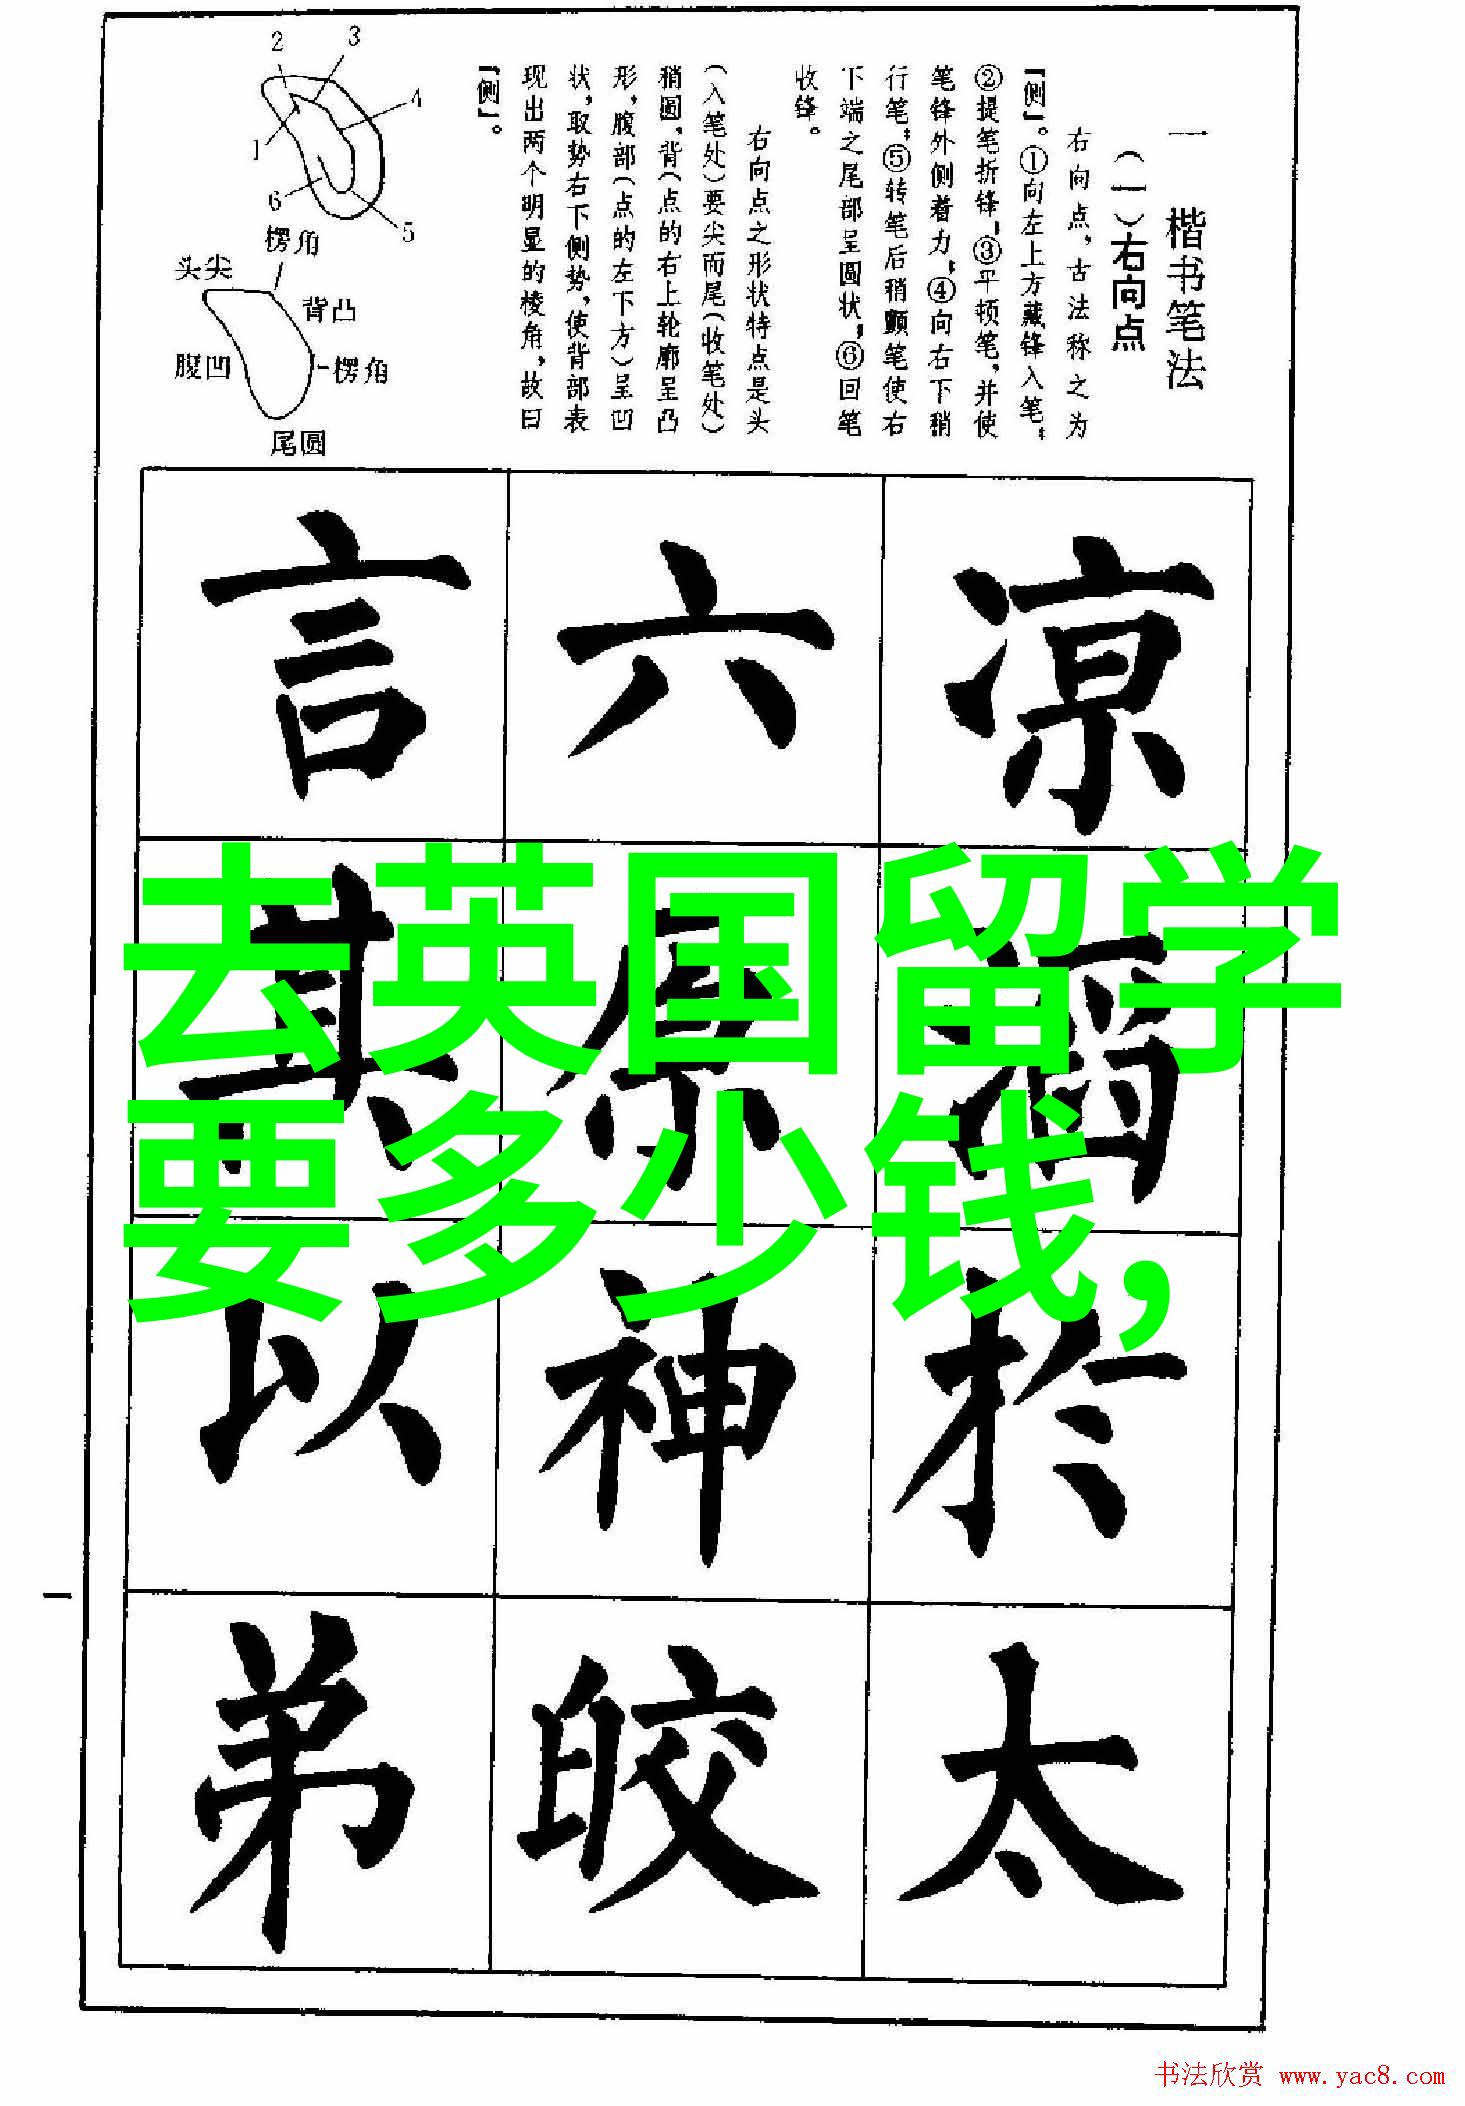 一 楷书笔法
(一)右向点
右向点，古法称之为
「侧」。①向左上方藏锋入笔；
②提笔折锋；③平顿笔，并使
笔锋外侧着力；④向右下稍
行笔；⑤转笔后稍颤笔使右
下端之尾部呈圆状；⑥回笔
收锋。
右向点之形状特点是头
(入笔处)要尖而尾(收笔处)
稍圆，背(点的右上轮廓呈凸
形，腹部(点的左下方)呈凹
状，取势右下侧势，使背部表
现出两个明显的棱角，故曰
「侧」。
2 3
4
1
6
5
楞角
头尖
背凸
腹凹
楞角
尾圆
凉 稻 於 太
六 原 神 皎
言 其 以 弟
去英国留学
要多少钱，
一
书法欣赏 www.yac8.com